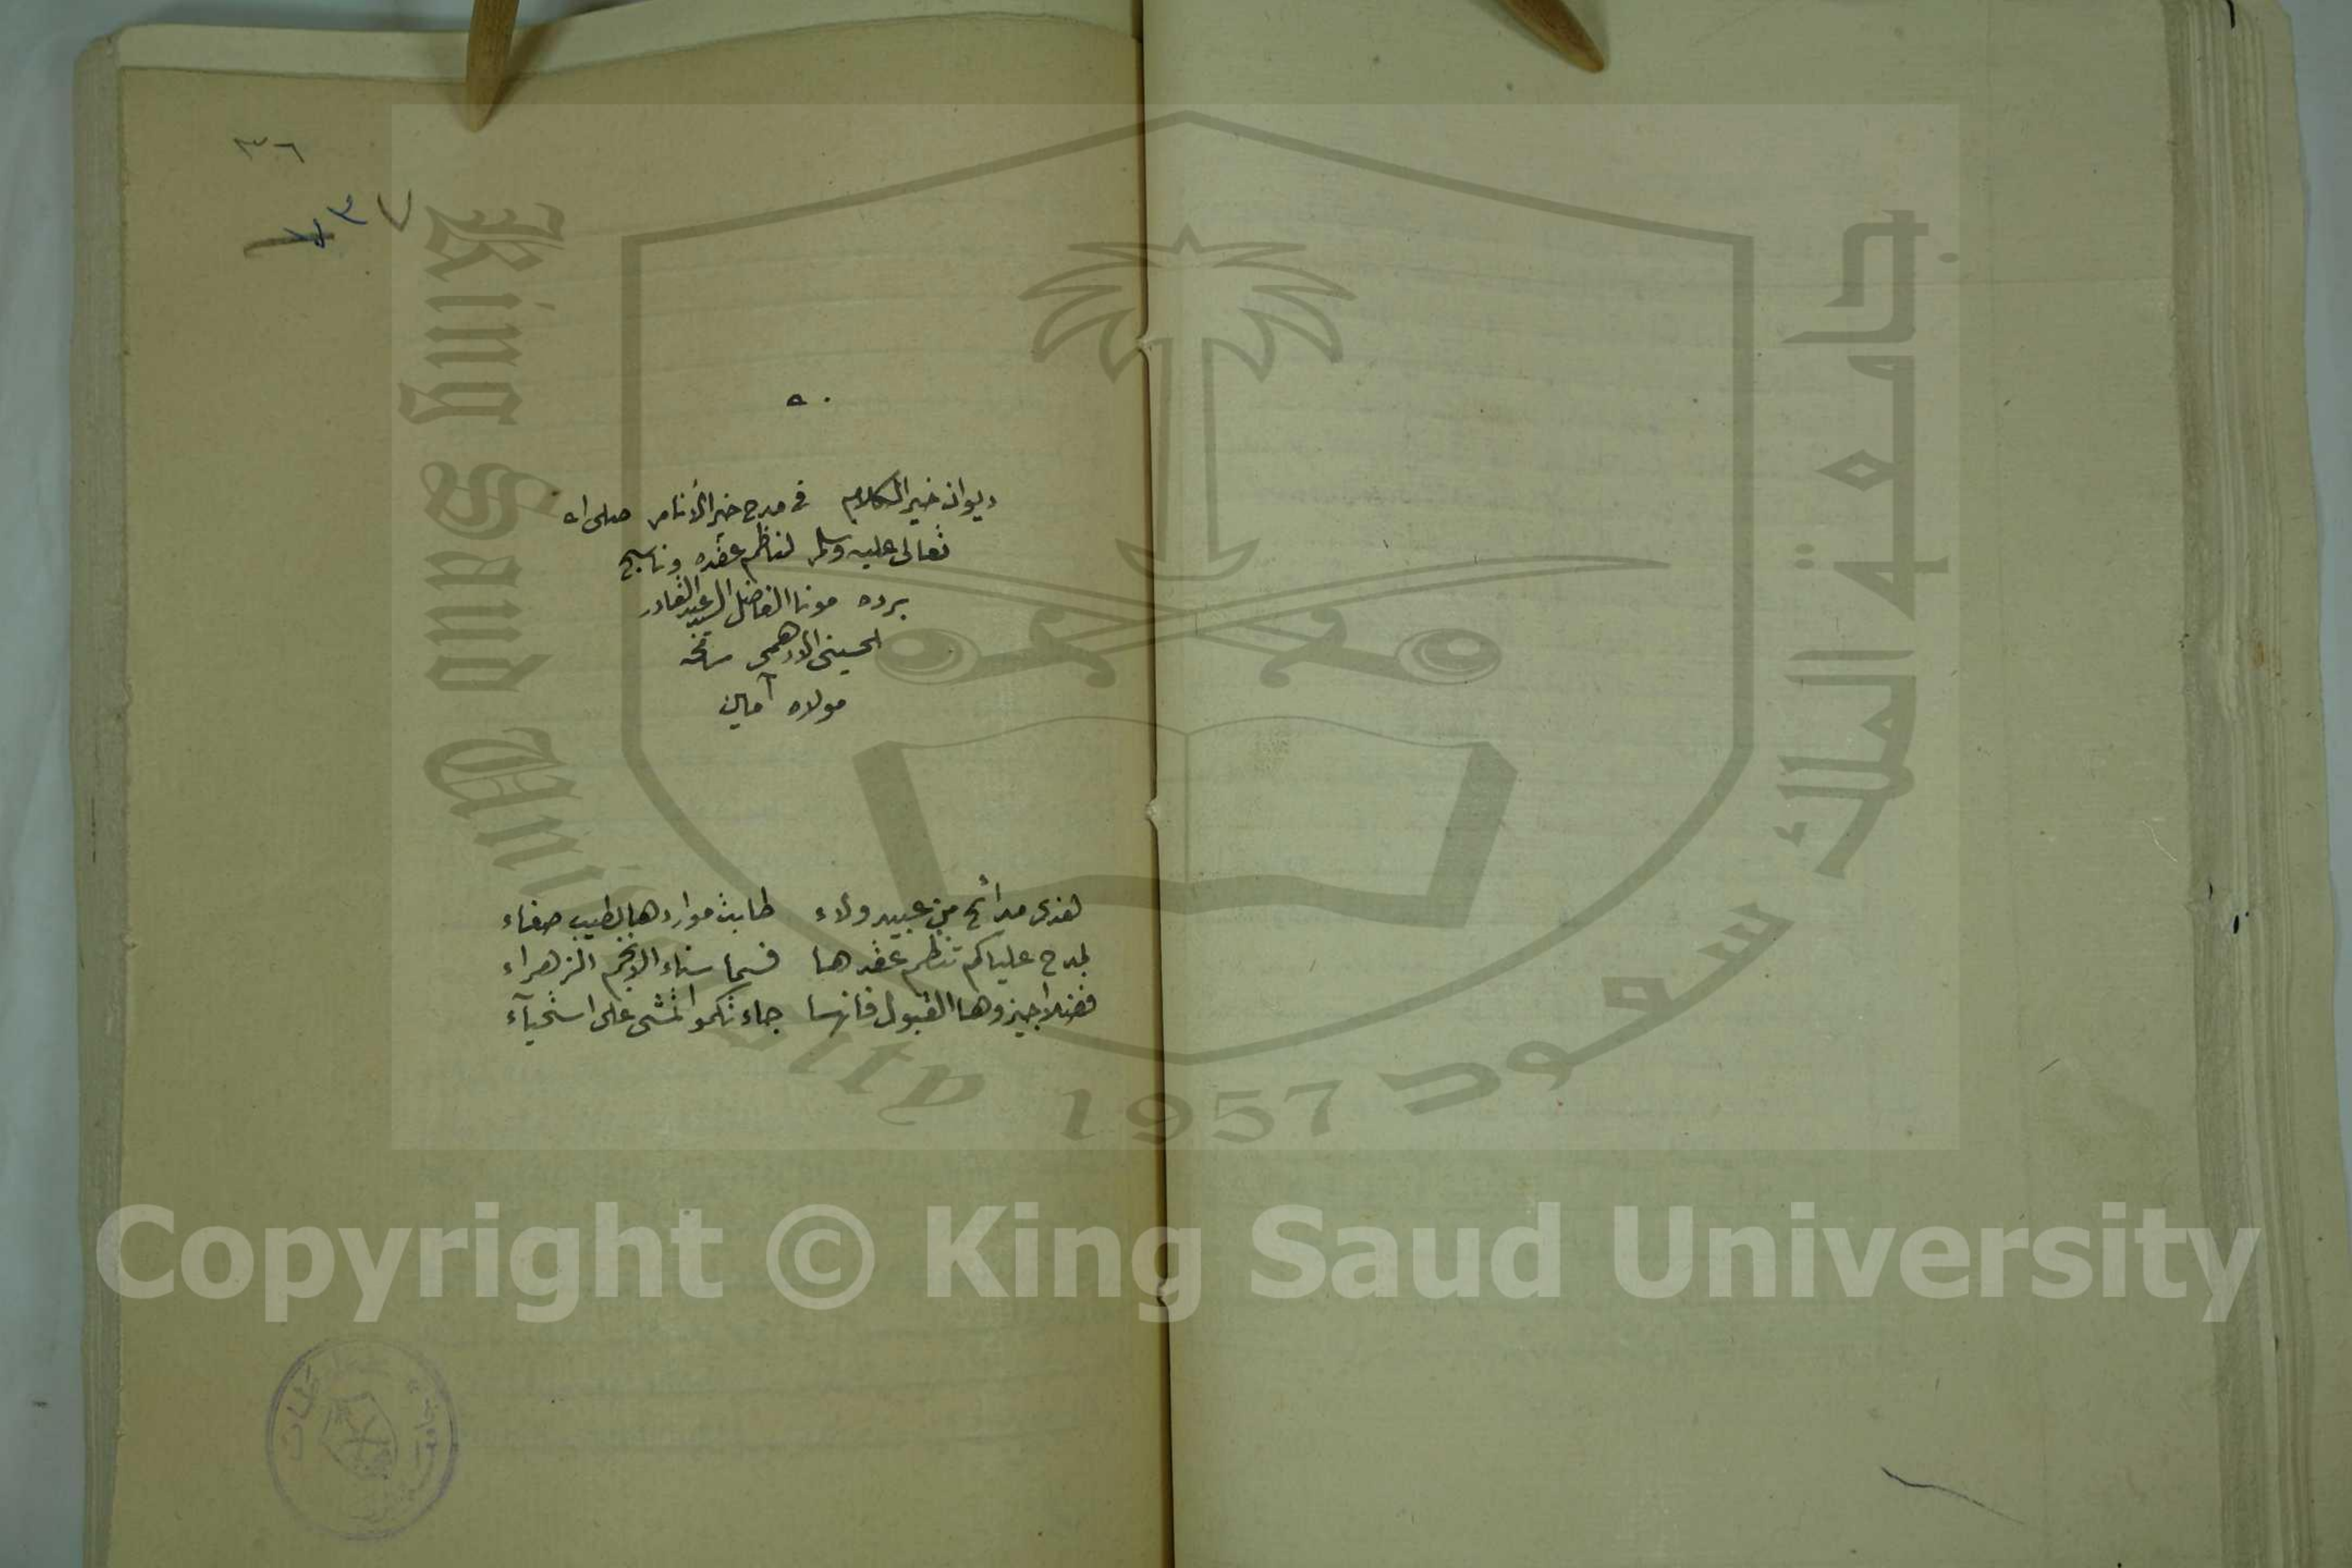 ٣٦
٣٧
ديوان خير الكلام في مدح خير الأنام صلى الله
تعالى عليه وسلم لناظم عقده وناسج
برده مونا الفاضل السيد عبد القادر
الحسيني الادهمي
مولاه آمين
هذى مدائح من عبيد ولاء طابت مواردها بطيب صفاء
لمدح علياكم تنظم عقدها فسما سناء الانجم الزهراء
فضلا اجيزوها القبول فانها جاءتكموا تمشى على استحيآء
King Saud University 1957
جامعة الملك سعود
Copyright © King Saud University